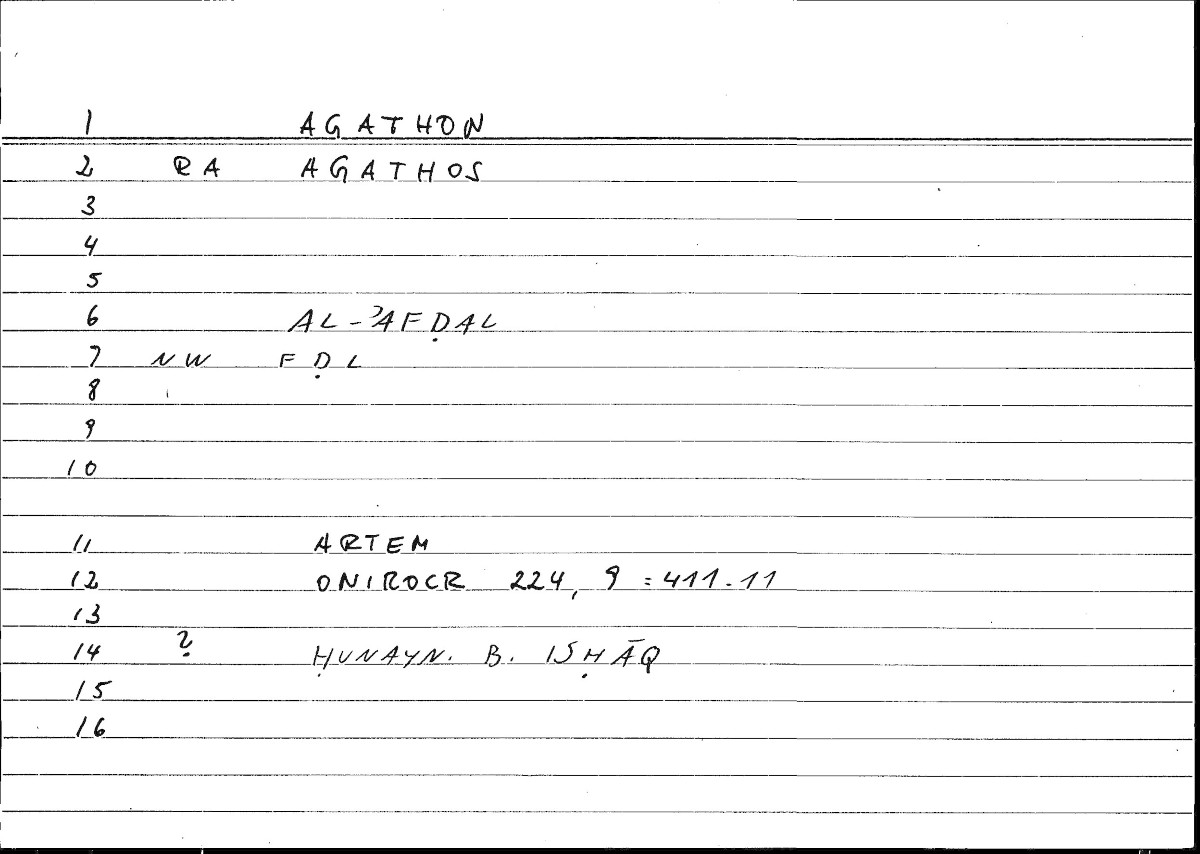 1 AGATHON
2 RA AGATHOS
3
4
5
6 AL-ʾAFḌAL
7 NW FḌL
8
9
10
11 ARTEM
12 ONIROCR 224, 9 = 411.11
13
14 ? ḤUNAYN. B. ISḤĀQ
15
16